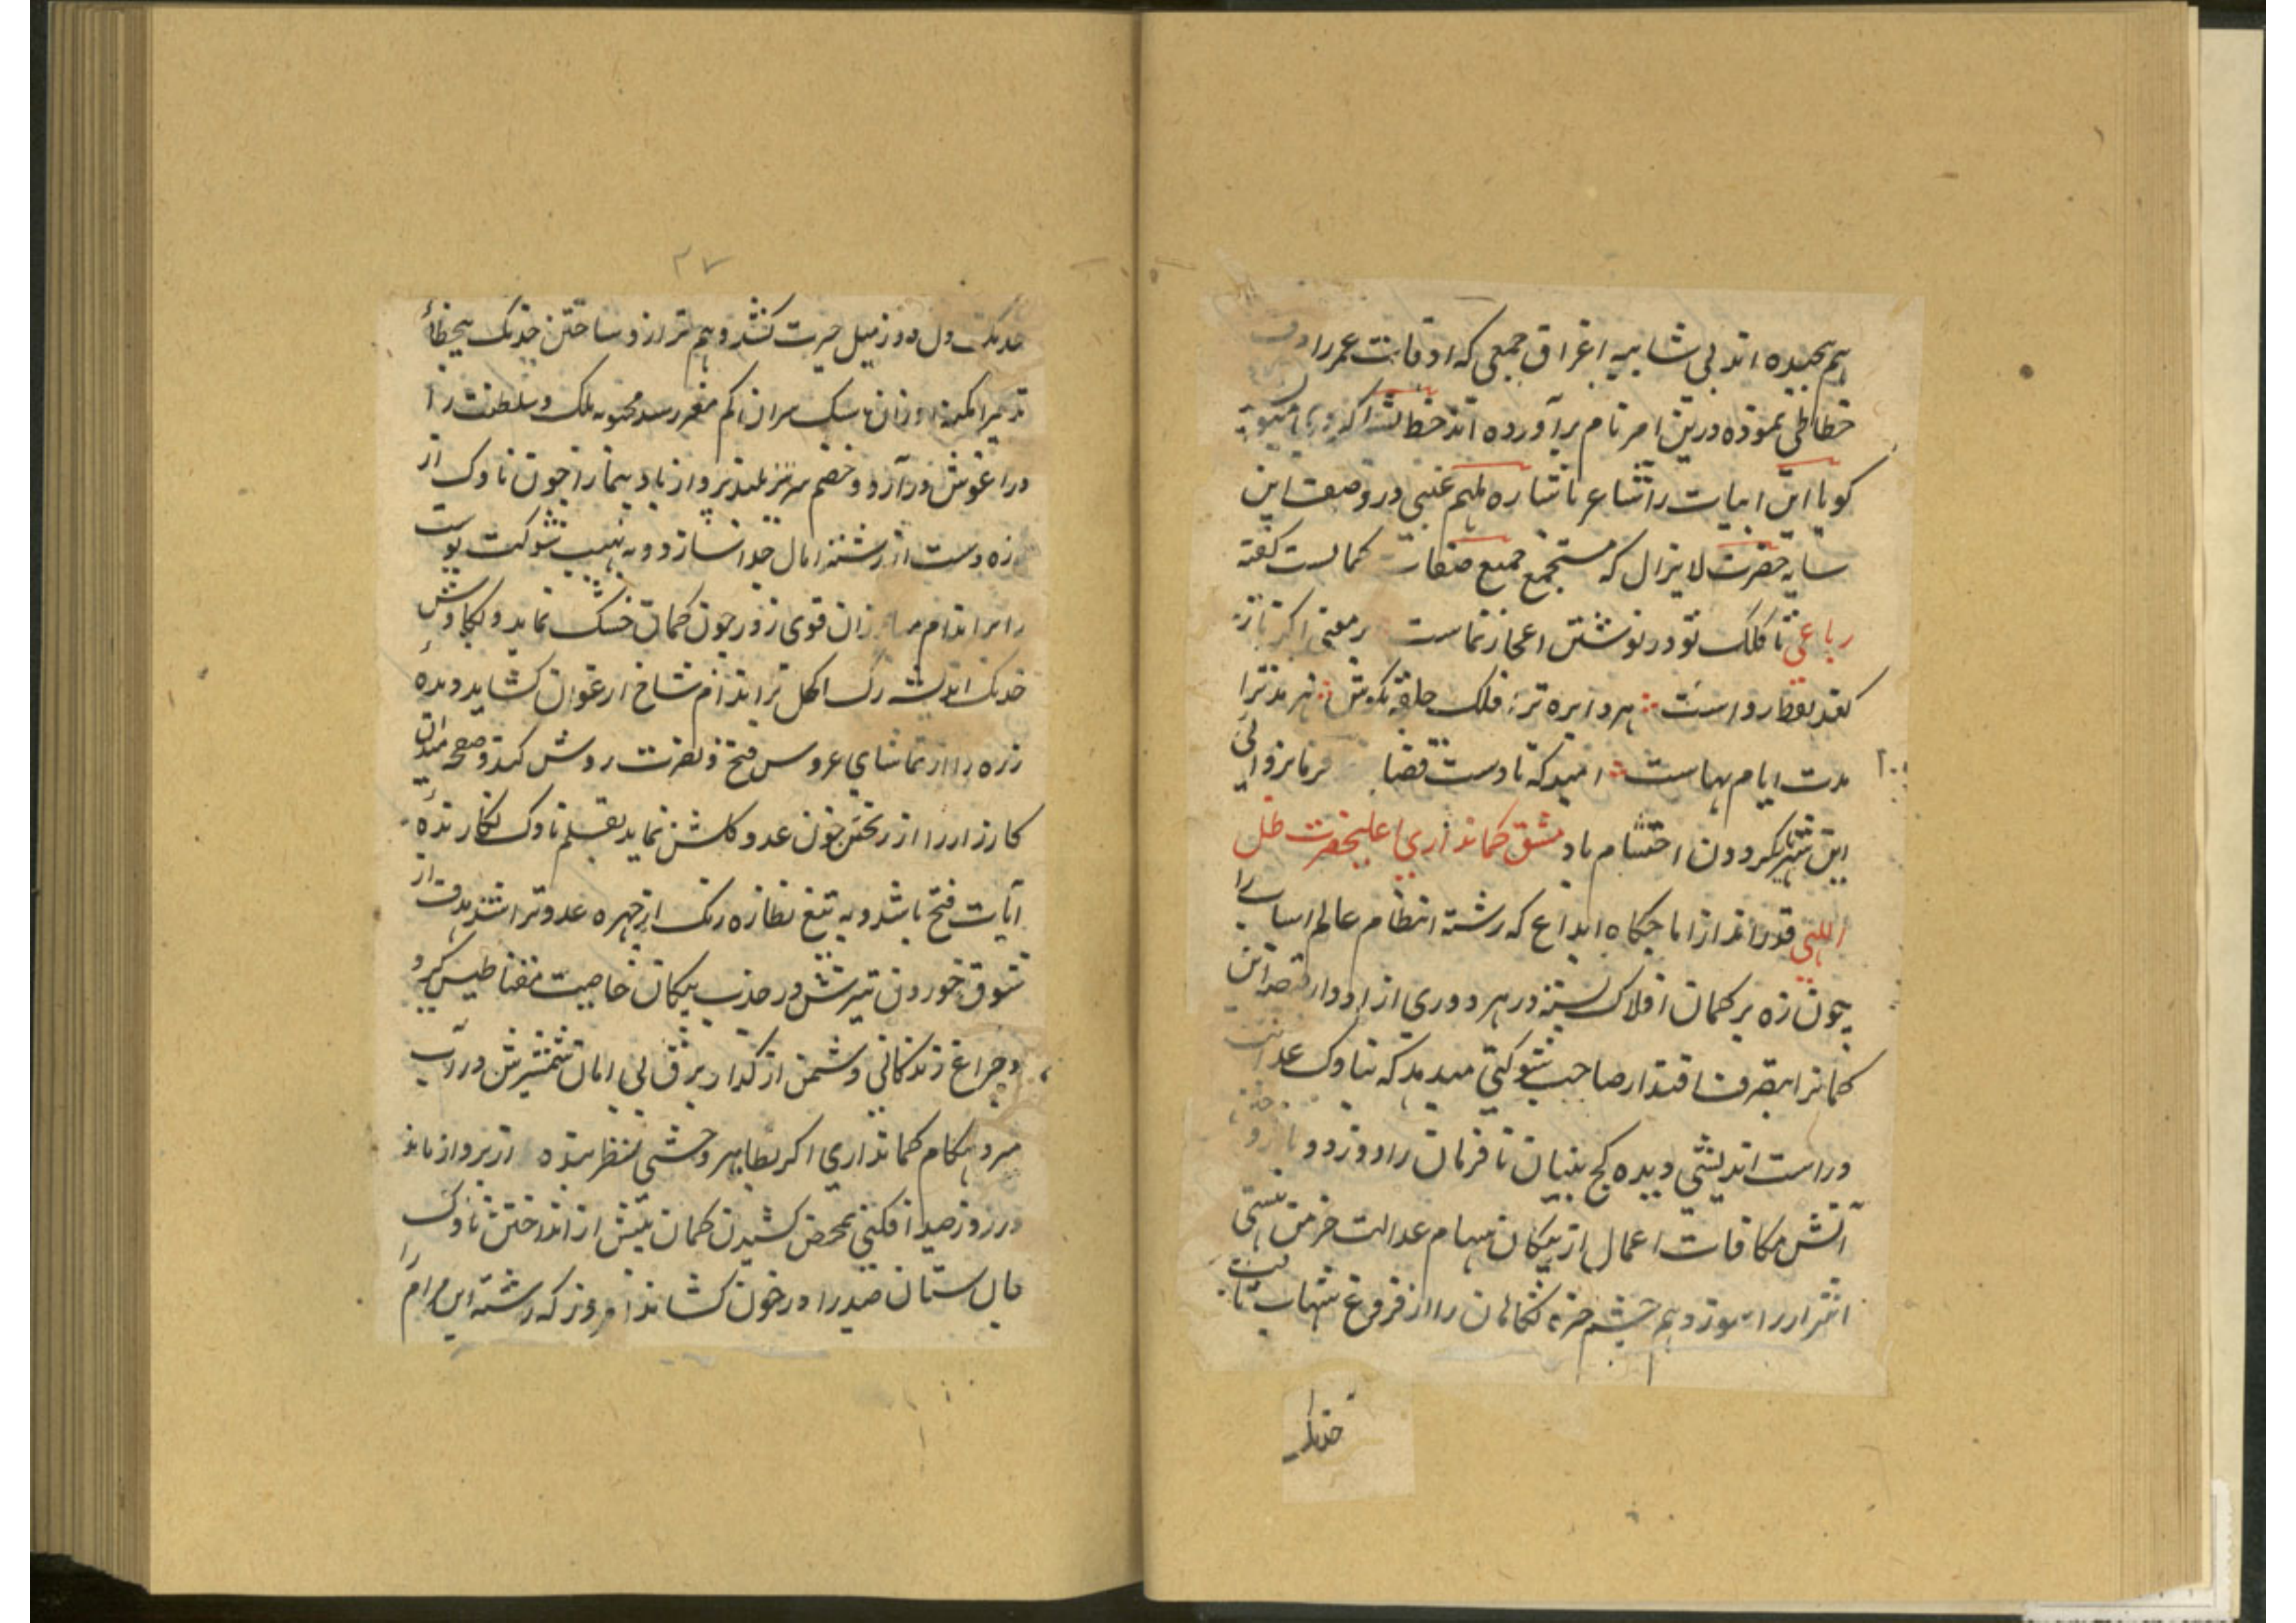 هم پیچیده اند بی شایبه اغراق جمعی که اوقات عمر را
خطاطی نموده درین امر نام برآورده اند خط
کویا این ابیات را شاعر باشاره ملهم غیبی در وصف این
سایه حضرت لایزال که مستجمع جمیع صفات کمالست گفته
رباعی تا کلک تو در نوشتن اعجاز نماست بر معنی اکر
کند لفظ رواست هر دایره ترا فلک حلقه بکوش هر مد ترا
مدت ایام بهاست امید که تا دست قضا فرمانروائی
این شهریار کردون احتشام باد مشق کمانداری اعلیحضرت ظل
اللهی قدر انداز اماجکاه ابداع که رشته انتظام عالم اسباب را
چون زه بر کمان افلاک بسته در هر دوری از ادوار قبضه این
کمانرا بتصرف اقتدار صاحب شوکتی میدهد که بناوک عدالت
و راست اندیشی دیده کج بینان نافرمان را دوزد و
آتش مکافات اعمال از پیکان سهام عدالت خرمن هستی
اشرار را سوزد هم چشم خیره نکاهان را از فروغ شهاب ثاقب
خدنک
۲۷
خدنک دل دوز میل حیرت کشد و هم ترازو ساختن خدنک بیخطای
تدبیر سبک سران کم مغز رسد محبوبه ملک و سلطنت را
در اغوش درآرد و خصم بلند پرواز باد پیما را چون ناوک از
زه دست از رشته امال جدا سازد و به نهیب شوکت پوست
را بر اندام زان قوی زور چون کمان خشک نماید و بکاوش
خدنک اندیشه رک اکحل بر اندام شاخ ارغوان کشاید و دیده
زره را از تماشای عروس فتح و نصرت روشن کند و صفحه میدان
کارزار را از ریختن خون عدو کلشن نماید بقلم ناوک نکارنده
آیات فتح باشد و به تیغ نظاره رنک از چهره عدو تراشد هدف از
شوق خوردن تیرش در جذب پیکان خاصیت مغناطیس کیرد
و چراغ زندکانی دشمن از کذار برق بی امان شمشیرش در آب
میرد هنکام کمانداری اکر بطایر وحشی نظر از پرواز ماند
در روز صید افکنی بمحض کشیدن کمان پیش از انداختن ناوک
جان ستان صید را در خون کشاند امروز که رشته این مرام را